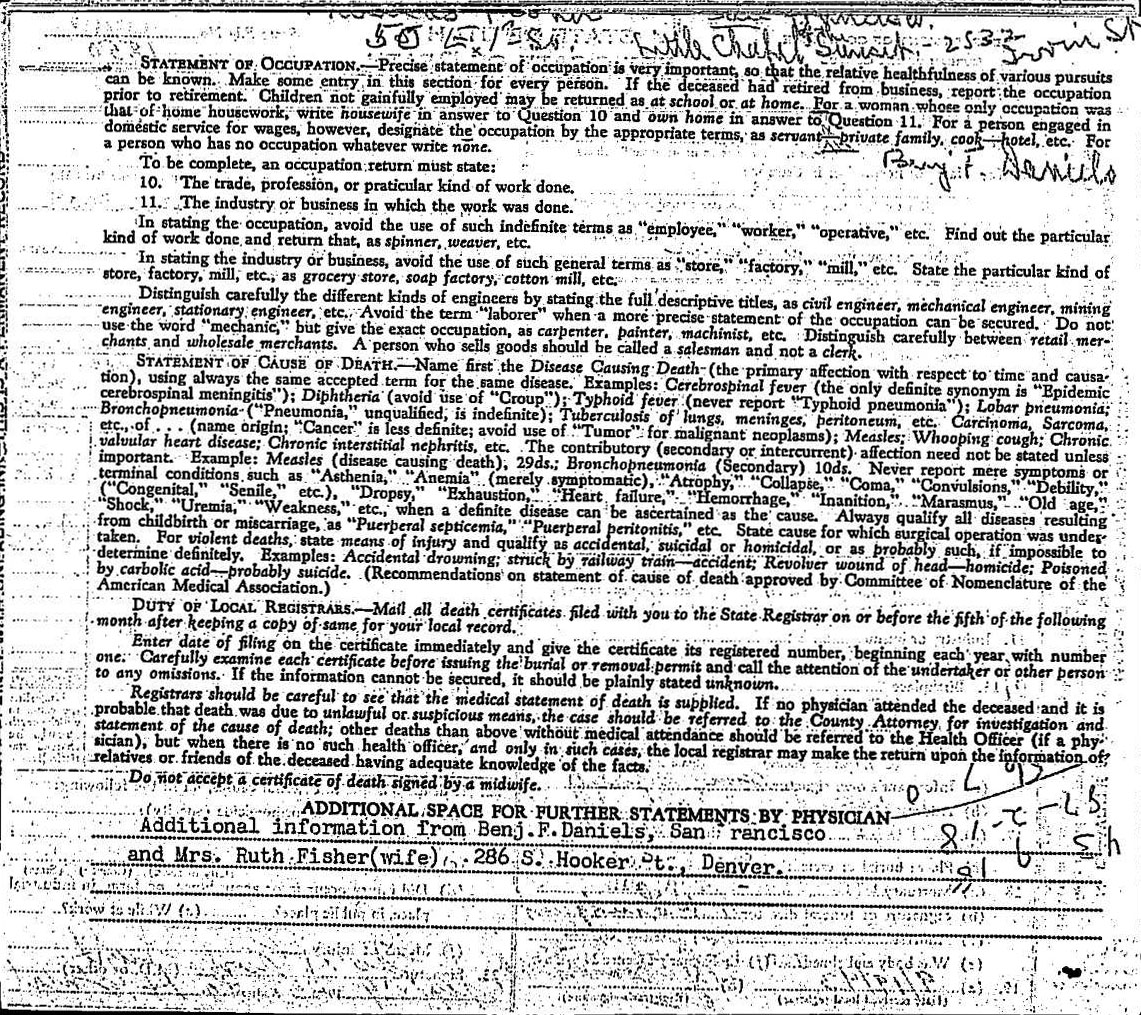 Little Chapel Sunset. 2532
Irvin St
STATEMENT OF OCCUPATION.—Precise statement of occupation is very important, so that the relative healthfulness of various pursuits
can be known. Make some entry in this section for every person. If the deceased had retired from business, report the occupation
prior to retirement. Children not gainfully employed may be returned as at school or at home. For a woman whose only occupation was
that of home housework, write housewife in answer to Question 10 and own home in answer to Question 11. For a person engaged in
domestic service for wages, however, designate the occupation by the appropriate terms, as servant—private family, cook—hotel, etc. For
a person who has no occupation whatever write none.
Benj F. Daniels
To be complete, an occupation return must state:
10. The trade, profession, or praticular kind of work done.
11. The industry or business in which the work was done.
In stating the occupation, avoid the use of such indefinite terms as "employee," "worker," "operative," etc. Find out the particular
kind of work done and return that, as spinner, weaver, etc.
In stating the industry or business, avoid the use of such general terms as "store," "factory," "mill," etc. State the particular kind of
store, factory, mill, etc., as grocery store, soap factory, cotton mill, etc.
Distinguish carefully the different kinds of engineers by stating the full descriptive titles, as civil engineer, mechanical engineer, mining
engineer, stationary engineer, etc. Avoid the term "laborer" when a more precise statement of the occupation can be secured. Do not
use the word "mechanic," but give the exact occupation, as carpenter, painter, machinist, etc. Distinguish carefully between retail mer-
chants and wholesale merchants. A person who sells goods should be called a salesman and not a clerk.
STATEMENT OF CAUSE OF DEATH.—Name first the Disease Causing Death (the primary affection with respect to time and causa-
tion), using always the same accepted term for the same disease. Examples: Cerebrospinal fever (the only definite synonym is "Epidemic
cerebrospinal meningitis"); Diphtheria (avoid use of "Croup"); Typhoid fever (never report "Typhoid pneumonia"); Lobar pneumonia;
Bronchopneumonia ("Pneumonia," unqualified, is indefinite); Tuberculosis of lungs, meninges, peritoneum, etc. Carcinoma, Sarcoma,
etc., of . . . (name origin; "Cancer" is less definite; avoid use of "Tumor" for malignant neoplasms); Measles; Whooping cough; Chronic
valvular heart disease; Chronic interstitial nephritis, etc. The contributory (secondary or intercurrent) affection need not be stated unless
important. Example: Measles (disease causing death), 29ds.; Bronchopneumonia (Secondary) 10ds. Never report mere symptoms or
terminal conditions such as "Asthenia," "Anemia" (merely symptomatic), "Atrophy," "Collapse," "Coma," "Convulsions," "Debility,"
("Congenital," "Senile," etc.), "Dropsy," "Exhaustion," "Heart failure," "Hemorrhage," "Inanition," "Marasmus," "Old age,"
"Shock," "Uremia," "Weakness," etc., when a definite disease can be ascertained as the cause. Always qualify all diseases resulting
from childbirth or miscarriage, as "Puerperal septicemia," "Puerperal peritonitis," etc. State cause for which surgical operation was under-
taken. For violent deaths, state means of injury and qualify as accidental, suicidal or homicidal, or as probably such, if impossible to
determine definitely. Examples: Accidental drowning; struck by railway train—accident; Revolver wound of head—homicide; Poisoned
by carbolic acid—probably suicide. (Recommendations on statement of cause of death approved by Committee of Nomenclature of the
American Medical Association.)
DUTY OF LOCAL REGISTRARS.—Mail all death certificates filed with you to the State Registrar on or before the fifth of the following
month after keeping a copy of same for your local record.
Enter date of filing on the certificate immediately and give the certificate its registered number, beginning each year with number
one. Carefully examine each certificate before issuing the burial or removal permit and call the attention of the undertaker or other person
to any omissions. If the information cannot be secured, it should be plainly stated unknown.
Registrars should be careful to see that the medical statement of death is supplied. If no physician attended the deceased and it is
probable that death was due to unlawful or suspicious means, the case should be referred to the County Attorney for investigation and
statement of the cause of death; other deaths than above without medical attendance should be referred to the Health Officer (if a phy-
sician), but when there is no such health officer, and only in such cases, the local registrar may make the return upon the information of
relatives or friends of the deceased having adequate knowledge of the facts.
Do not accept a certificate of death signed by a midwife.
ADDITIONAL SPACE FOR FURTHER STATEMENTS BY PHYSICIAN
Additional information from Benj.F.Daniels, San Francisco
and Mrs. Ruth Fisher(wife), 286 S. Hooker St., Denver.